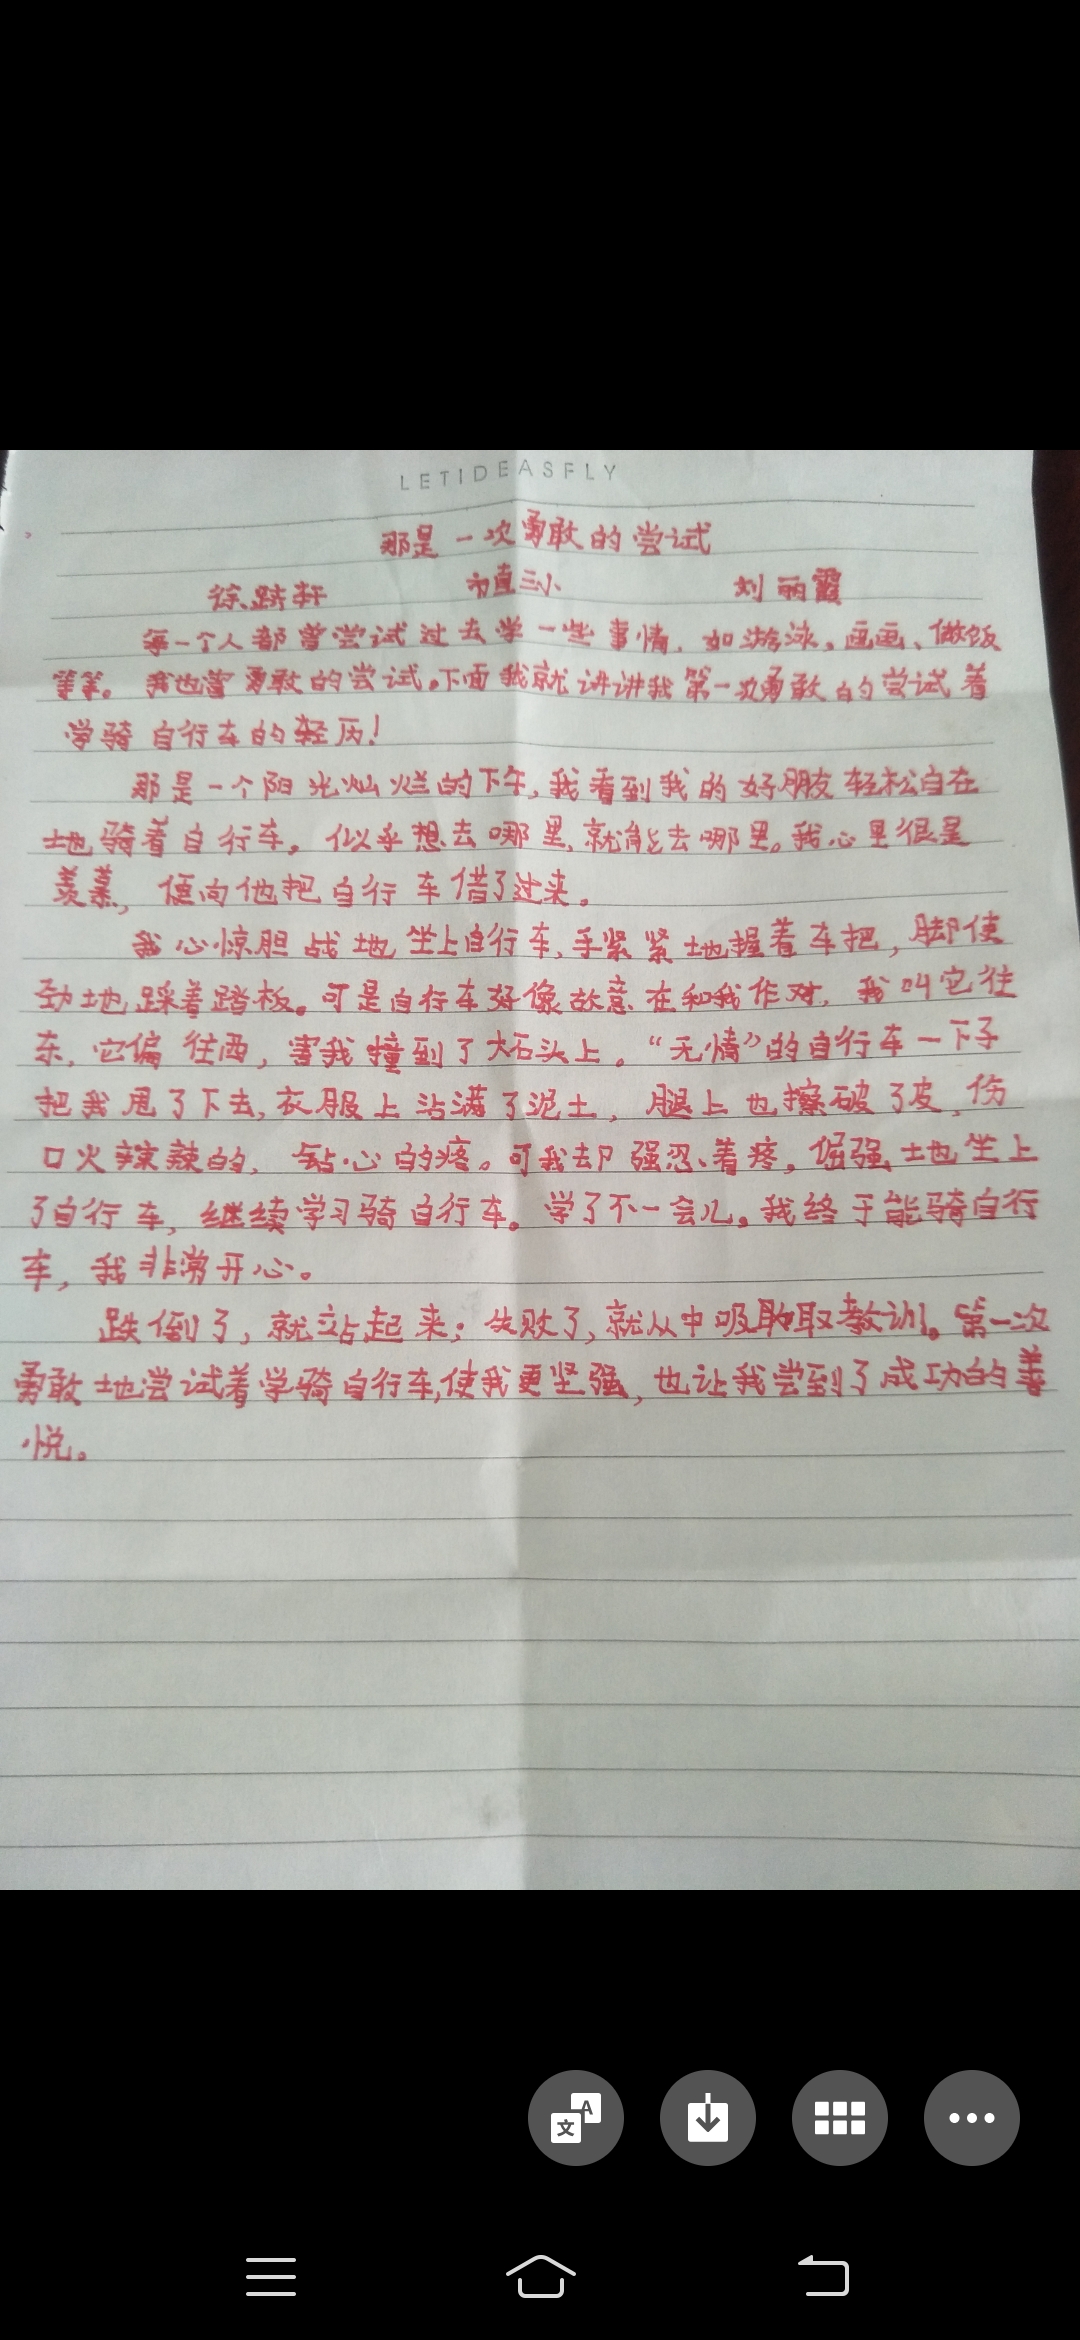 LETIDEASFLY
那是一次勇敢的尝试
徐跻轩 市直三小 刘丽霞
每一个人都曾尝试过去学一些事情,如游泳、画画、做饭
等等。我也曾勇敢的尝试。下面我就讲讲我第一次勇敢的尝试着
学骑自行车的轻历!
那是一个阳光灿烂的下午,我看到我的好朋友轻松自在
地骑着自行车。似乎想去哪里,就能去哪里。我心里很是
羡慕,便向他把自行车借了过来。
我心惊胆战地坐上自行车,手紧紧地握着车把,脚使
劲地踩着踏板。可是自行车好像故意在和我作对,我叫它往
东,它偏往西,害我撞到了大石头上。“无情”的自行车一下子
把我甩了下去,衣服上沾满了泥土,腿上也擦破了皮,伤
口火辣辣的,钻心的疼。可我却强忍着疼,倔强地坐上
了自行车,继续学习骑自行车。学了不一会儿。我终于能骑自行
车,我非常开心。
跌倒了,就站起来;失败了,就从中吸取教训。第一次
勇敢地尝试着学骑自行车,使我更坚强,也让我尝到了成功的喜
悦。